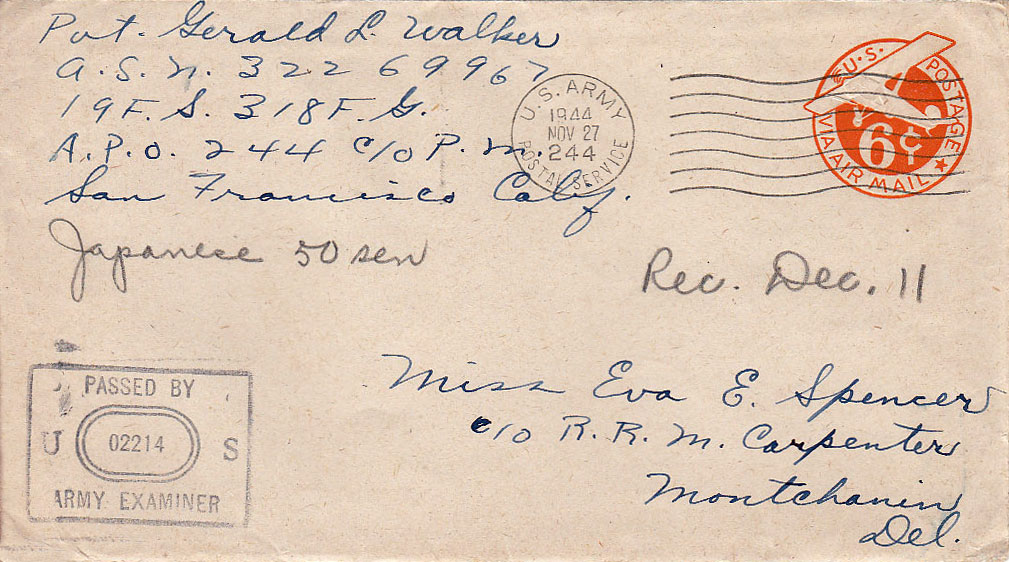 Pvt. Gerald L. Walker
A.S.N. 32269967
19 F. S. 318 F. G.
A.P.O. 244 c/o P. M.
San Francisco Calif.
Japanese 50 sen
U.S. ARMY
1944
NOV 27
244
POSTAL SERVICE
U.S. POSTAGE
6¢
VIA AIR MAIL
Rec. Dec. 11
PASSED BY
U 02214 S
ARMY EXAMINER
Miss Eva E. Spencer
c/o R. R. M. Carpenter
Montchanin
Del.